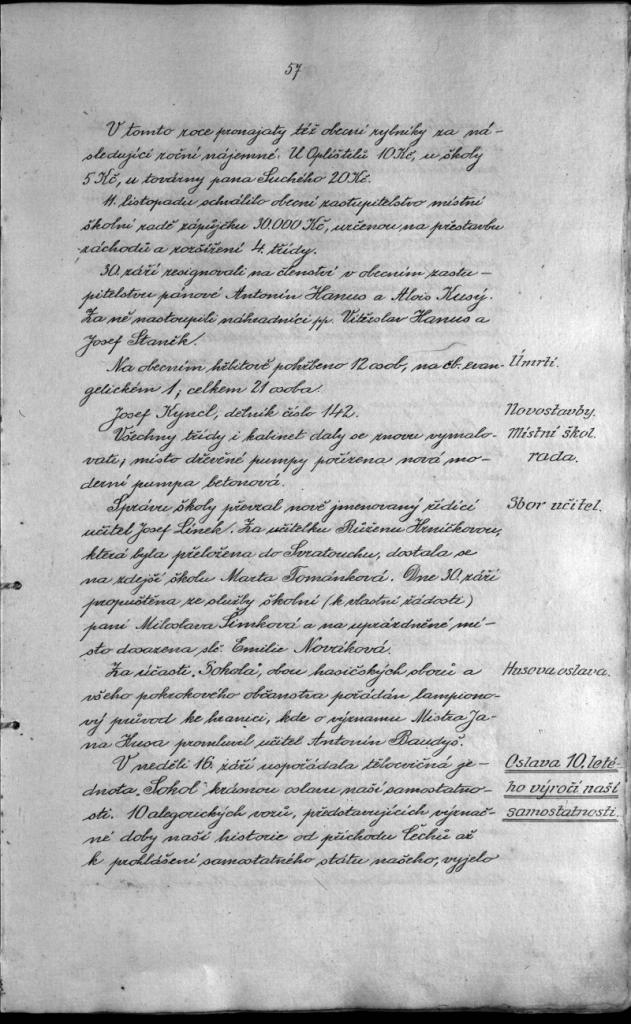 57
V tomto roce pronajaty též obecní rybníky za ná-
sledující roční nájemné: U Oplištilů 10 Kč, u školy
5 Kč, u továrny pana Suchého 20 Kč.
4. listopadu schválilo obecní zastupitelstvo místní
školní radě zápůjčku 30.000 Kč, určenou na přestavbu
záchodů a rozšíření 4. třídy.
30. září resignovali na členství v obecním zastu-
pitelstvu pánové Antonín Hanus a Alois Kusý.
Za ně nastoupili náhradníci pp. Vítězslav Hanus a
Josef Staněk.
Na obecním hřbitově pohřbeno 12 osob, na čb. evan-
gelickém 1; celkem 21 osoba.
Úmrtí.
Josef Kyncl, dělník číslo 142.
Novostavby.
Všechny třídy i kabinet daly se znovu vymalo-
vati; místo dřevěné pumpy pořízena nová mo-
derní pumpa betonová.
Místní škol.
rada.
Správu školy převzal nově jmenovaný řídící
učitel Josef Línek. Za učitelku Růženu Hrničkovou,
která byla přeložena do Svratouchu, dostala se
na zdejší školu Marta Tománková. Dne 30. září
propuštěna ze služby školní (k vlastní žádosti)
paní Miloslava Šimková a na uprázdněné mí-
sto dosazena slč. Emilie Nováková.
Sbor učitel.
Za účasti „Sokola", obou hasičských sborů a
všeho pokrokového občanstva pořádán lampiono-
vý průvod ke hranici, kde o významu Mistra Ja-
na Husa promluvil učitel Antonín Baudyš.
Husova oslava.
V neděli 16. září uspořádala tělocvičná je-
dnota „Sokol" krásnou oslavu naší samostatno-
sti. 10 alegorických vozů, představujících význač-
né doby naší historie od příchodu Čechů až
k prohlášení samostatného státu našeho, vyjelo
Oslava 10. leté-
ho výročí naší
samostatnosti.